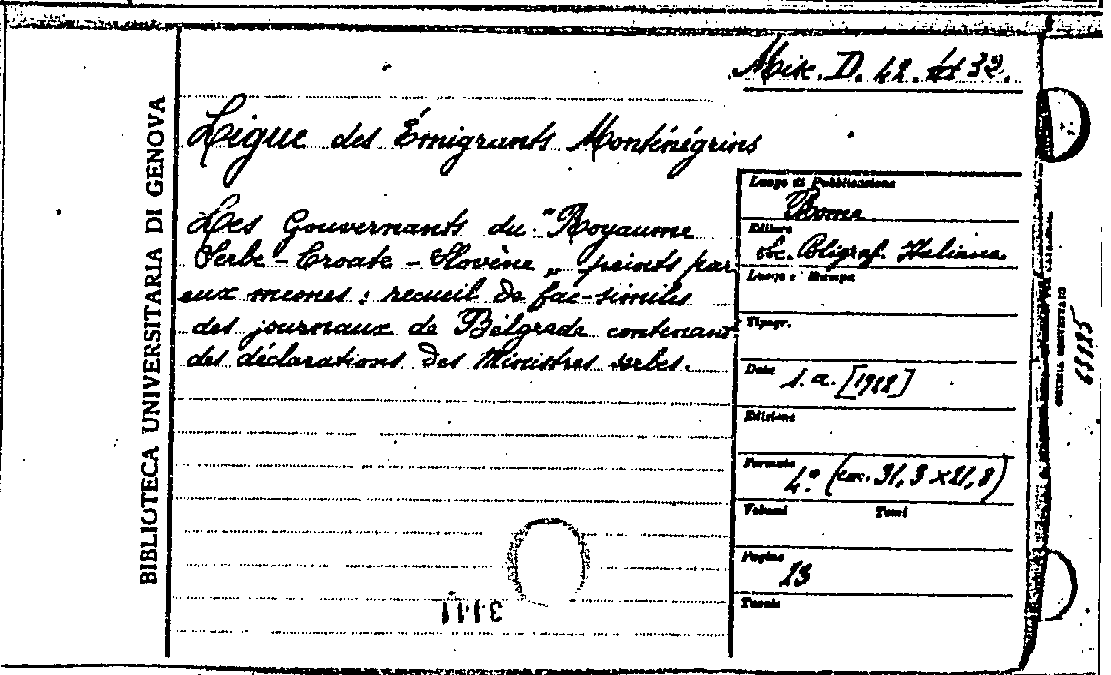 Misc. D. 42. 32.
BIBLIOTECA UNIVERSITARIA DI GENOVA
Ligue des Émigrants Monténégrins
Les Gouvernants du "Royaume
Serbe-Croate-Slovène" peints par
eux memes : recueil de fac-similés
des journaux de Bélgrade contenant
des déclarations des Ministres serbes.
Luogo di Pubblicazione
Rome
Editore
Soc. Poligraf. Italiana.
Luogo e Stampa
Tipogr.
Data
s. a. [1922]
Edizione
Formato
4.° (cm. 31,3 x 21,8)
Volumi Tomi
Pagine
23
Tavole